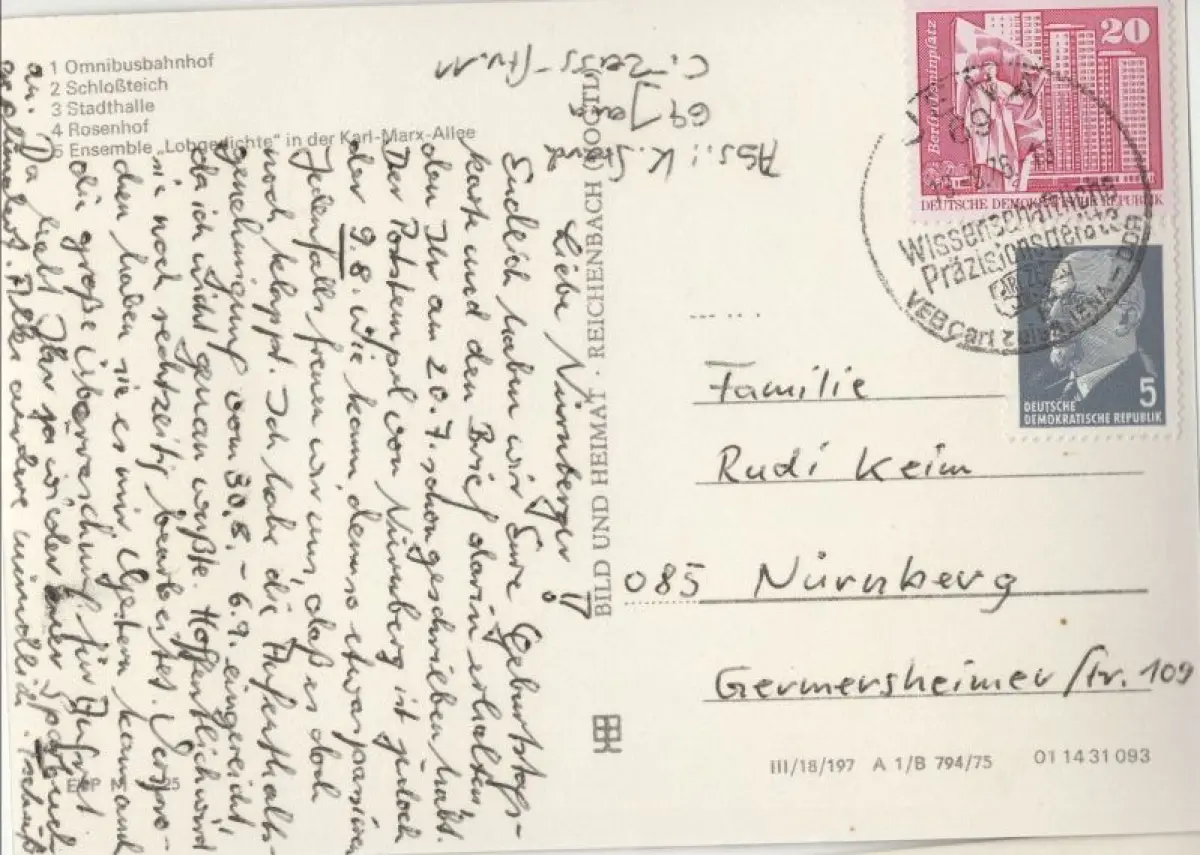 1 Omnibusbahnhof
2 Schloßteich
3 Stadthalle
4 Rosenhof
5 Ensemble „Lobgedichte“ in der Karl-Marx-Allee
Abs.: K.
69 Jena
C.-Zeiss-Str. 11
Liebe Nürnberger!
Endlich haben wir Eure Geburtstags-
karte und den Brief darin erhalten,
den Ihr am 20.7. schon geschrieben habt.
Der Poststempel von Nürnberg ist jedoch
der 9.8. Wie kann denn so etwas passieren
Jedenfalls freuen wir uns, daß es doch
noch klappt. Ich habe die Aufenthalts-
genehmigung vom 30.8. – 6.9. eingereicht,
da ich nicht genau wußte. Hoffentlich wird
sie noch rechtzeitig bearbeitet. Verspro-
chen haben sie es mir. Gestern kam auch
die große Überraschung für Aufret
an. Da habt Ihr ja wieder
geplündert. Alles andere mündlich. Tschüß
BILD UND HEIMAT · REICHENBACH (VOGTL)
20
Berlin-Leninplatz
DEUTSCHE DEMOKRATISCHE REPUBLIK
JENA
69
Wissenschaftliche
Präzisionsgeräte
VEB Carl Zeiss JENA – DDR
5
DEUTSCHE
DEMOKRATISCHE REPUBLIK
Familie
Rudi Keim
085 Nürnberg
Germersheimer Str. 109
III/18/197 A 1/B 794/75 01 14 31 093